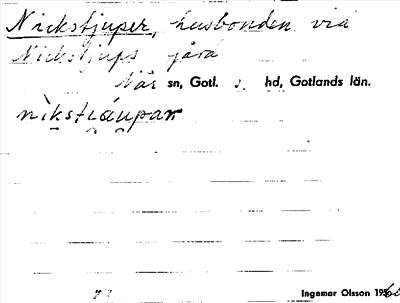 Nickstjuper, husbonden vid
Nickstjups gård
När sn, Gotl. s. hd, Gotlands län.
nikstiáupar
Ingemar Olsson 19